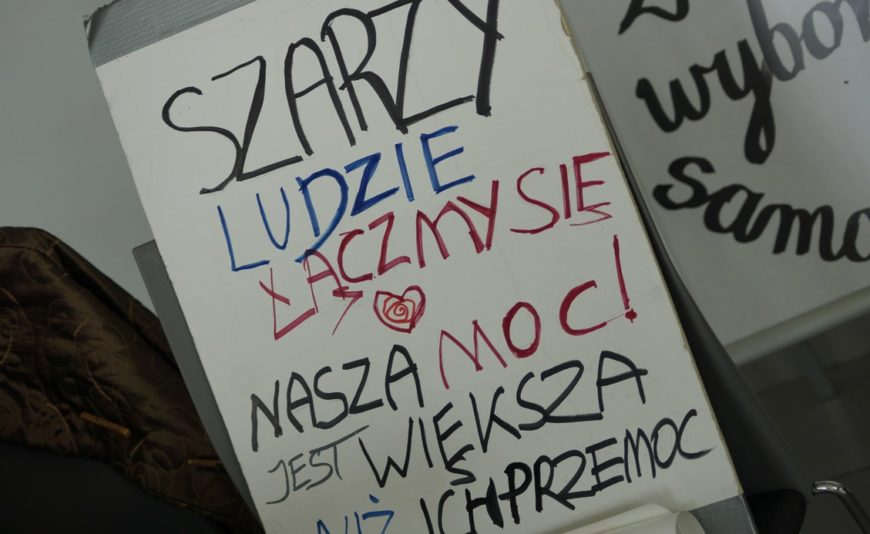 SZARZY
LUDZIE
ŁĄCZMY SIĘ
MOC!
NASZA
JEST WIĘKSZA
NIŻ ICH PRZEMOC
wybor
samo